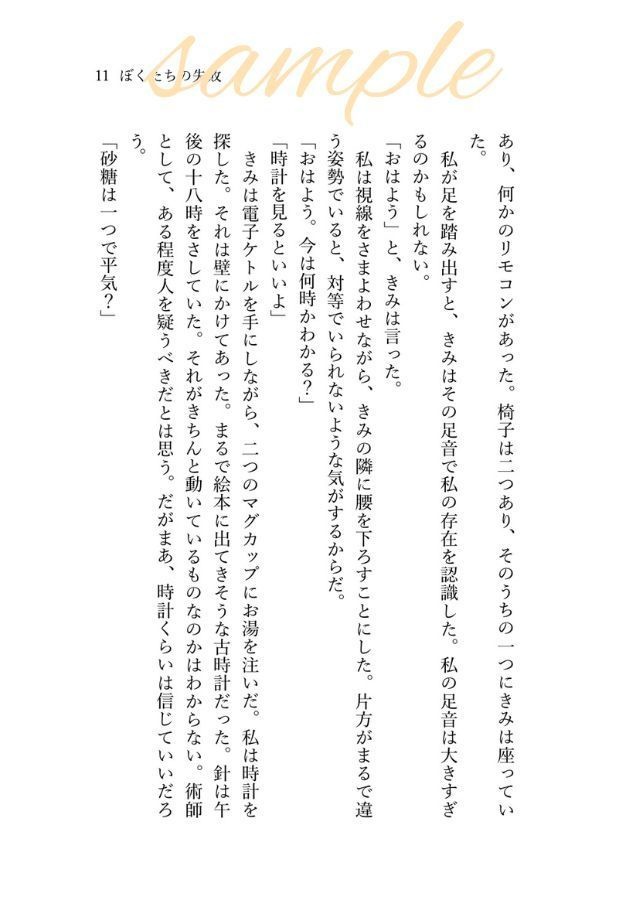 sample
11 ぼくたちの失敗
あり、何かのリモコンがあった。椅子は二つあり、そのうちの一つにきみは座ってい
た。
私が足を踏み出すと、きみはその足音で私の存在を認識した。私の足音は大きすぎ
るのかもしれない。
「おはよう」と、きみは言った。
私は視線をさまよわせながら、きみの隣に腰を下ろすことにした。片方がまるで違
う姿勢でいると、対等でいられないような気がするからだ。
「おはよう。今は何時かわかる？」
「時計を見るといいよ」
きみは電子ケトルを手にしながら、二つのマグカップにお湯を注いだ。私は時計を
探した。それは壁にかけてあった。まるで絵本に出てきそうな古時計だった。針は午
後の十八時をさしていた。それがきちんと動いているものなのかはわからない。術師
として、ある程度人を疑うべきだとは思う。だがまあ、時計くらいは信じていいだろ
う。
「砂糖は一つで平気？」